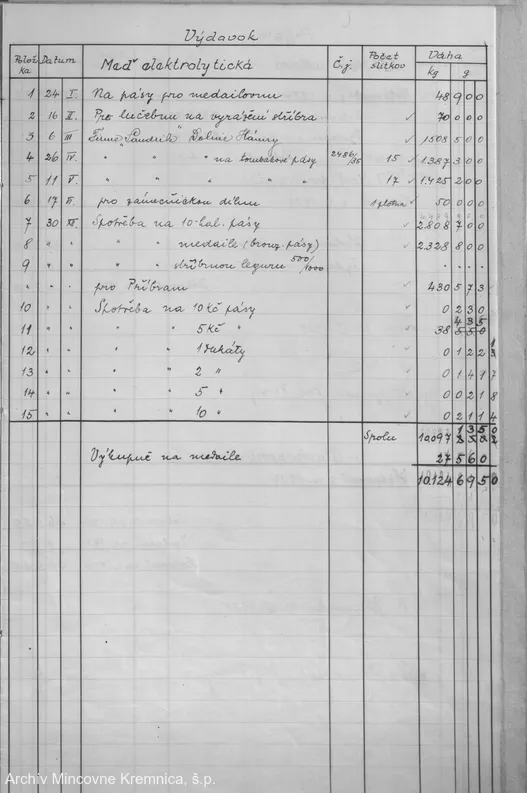 Výdavok
Polož-ka Datum Meď elektrolytická Č.j. Počet slitkov Váha kg g
1 24 I. Na pásy pro medailovnu 48 900
2 16 II. Pro lučebnu na vyrážění stříbra 70 000
3 6 III Firma "Sandrik" Dolnie Hámry 1508 500
4 26 IV. " " " na tombakové pásy 2486/35 15 1.387 300
5 11 V. " " " " " 17 1.425 200
6 17 II. pro zámečnickou dílnu 1 plotna 50 000
7 30 XII. Spotřeba na 10-hal. pásy 2.808 700
8 " " " " medaile (bronz. pásy) 2.328 800
9 " " " " stříbrnou leguru 500/1000 . . . .
" " " pro Příbram 430 573
10 " " Spotřeba na 10 Kč pásy 0 230
11 " " " " 5 Kč " 38 550 435
12 " " " " 1 dukáty 0 122 3 1
13 " " " " 2 " 0 149 7
14 " " " " 5 " 0 021 8
15 " " " " 10 " 0 211 4
Spolu 10.097 1350
Výkupné na medaile 27 560
10.124 695 0
Archív Mincovne Kremnica, š.p.